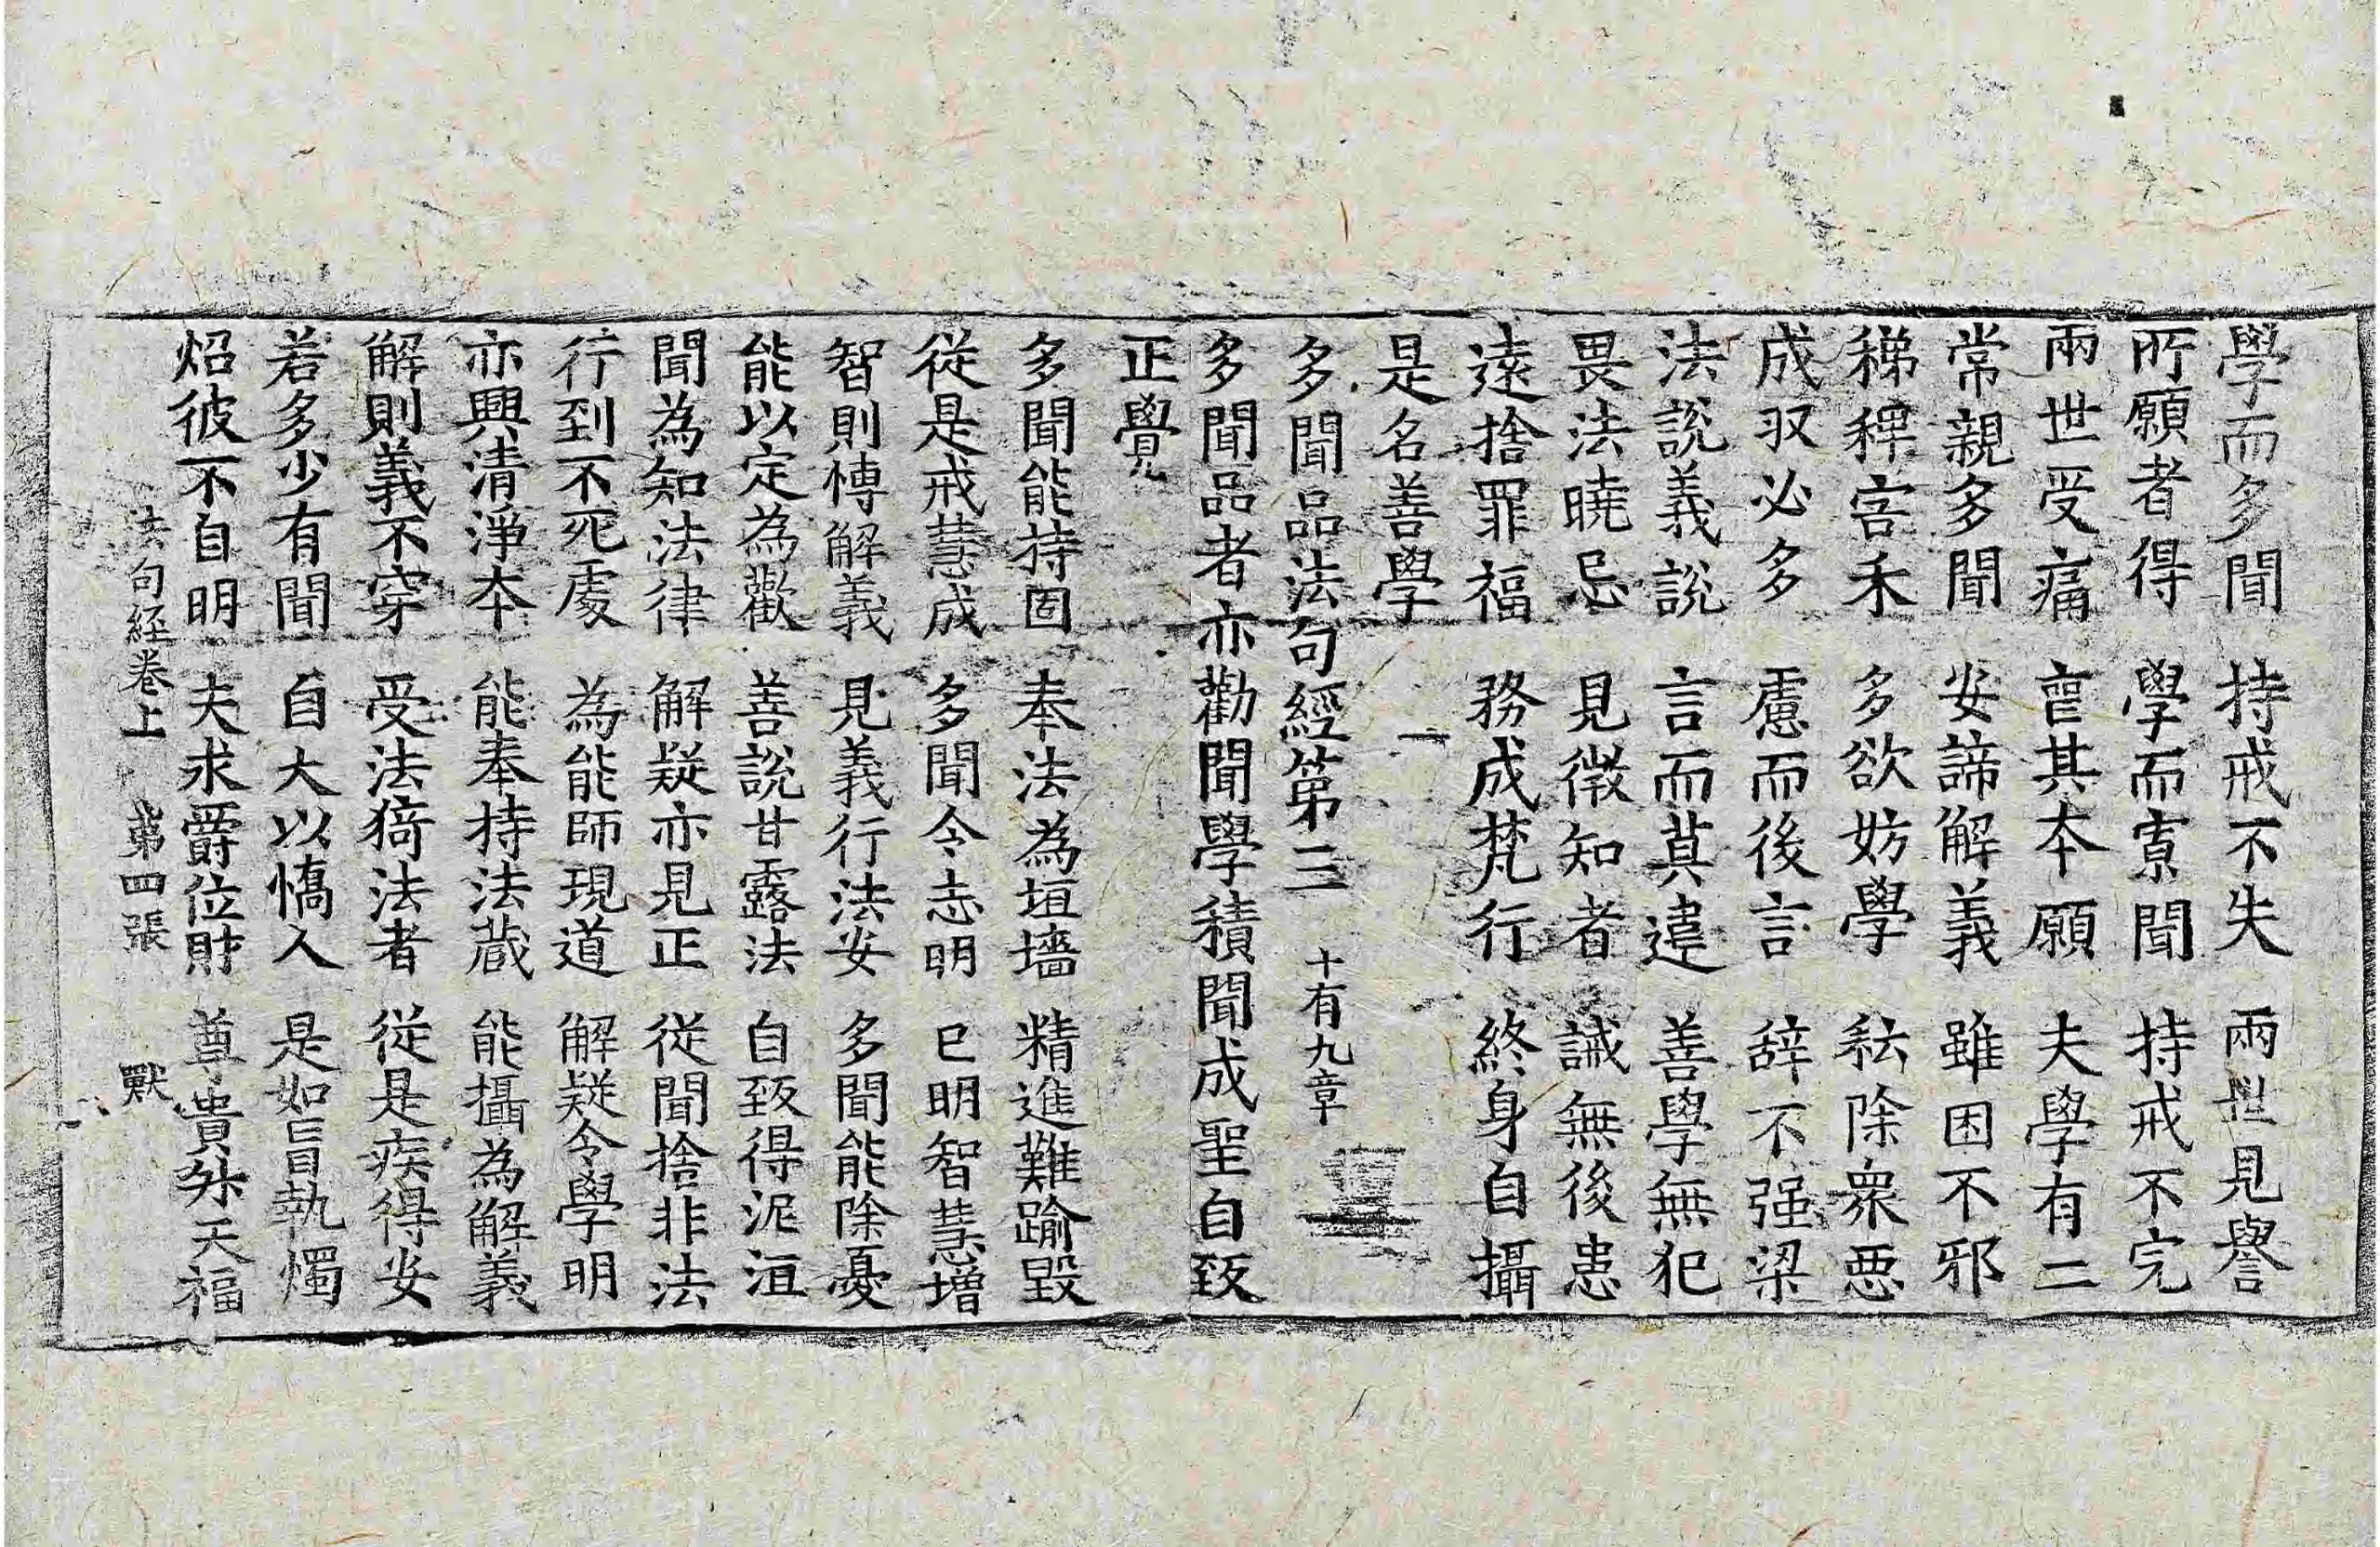 學而多聞 持戒不失 兩世見譽
所願者得 學而寡聞 持戒不完
兩世受痛 喪其本願 夫學有二
常親多聞 安諦解義 雖困不邪
稊稗害禾 多欲妨學 耘除衆惡
成収必多 慮而後言 辞不强梁
法說義說 言而莫違 善學無犯
畏法曉忌 見微知者 誡無後患
遠捨罪福 務成梵行 終身自攝
是名善學
多聞品法句經第三 十有九章
多聞品者亦勸聞學積聞成聖自致
正覺
多聞能持固 奉法為垣墻 精進難踰毀
從是戒慧成 多聞令志明 已明智慧增
智則博解義 見義行法安 多聞能除憂
能以定為歡 善說甘露法 自致得泥洹
聞為知法律 解疑亦見正 從聞捨非法
行到不死處 為能師現道 解疑令學明
亦興清淨本 能奉持法藏 能攝為解義
解則義不穿 受法猗法者 從是疾得安
若多少有聞 自大以憍人 是如盲執燭
炤彼不自明 夫求爵位財 尊貴升天福
法句經卷上 第四張 獸